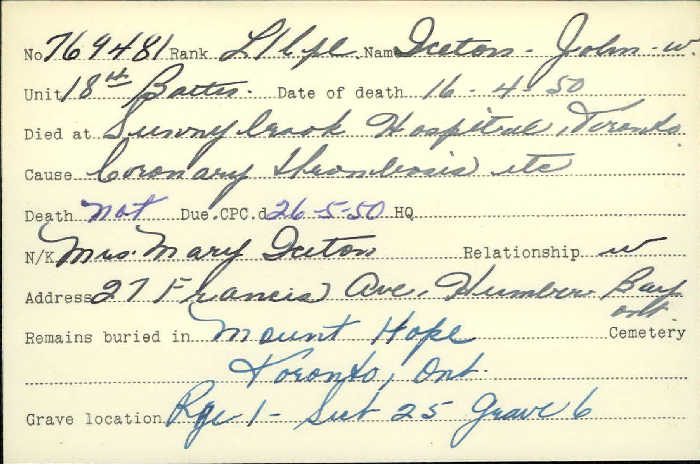 No 769481 Rank L/Cpl. Name Iceton - John - W.
Unit 18th Battn. Date of death 16 - 4 - 50
Died at Sunnybrook Hospital, Toronto
Cause Coronary thrombosis etc
Death not Due.CPC.d 26-5-50 HQ
N/K Mrs. Mary Iceton Relationship w
Address 27 Francis Ave, Humber Bay
ont.
Remains buried in Mount Hope Cemetery
Toronto, Ont.
Grave location Rge 1 - Sect 25 Grave 6